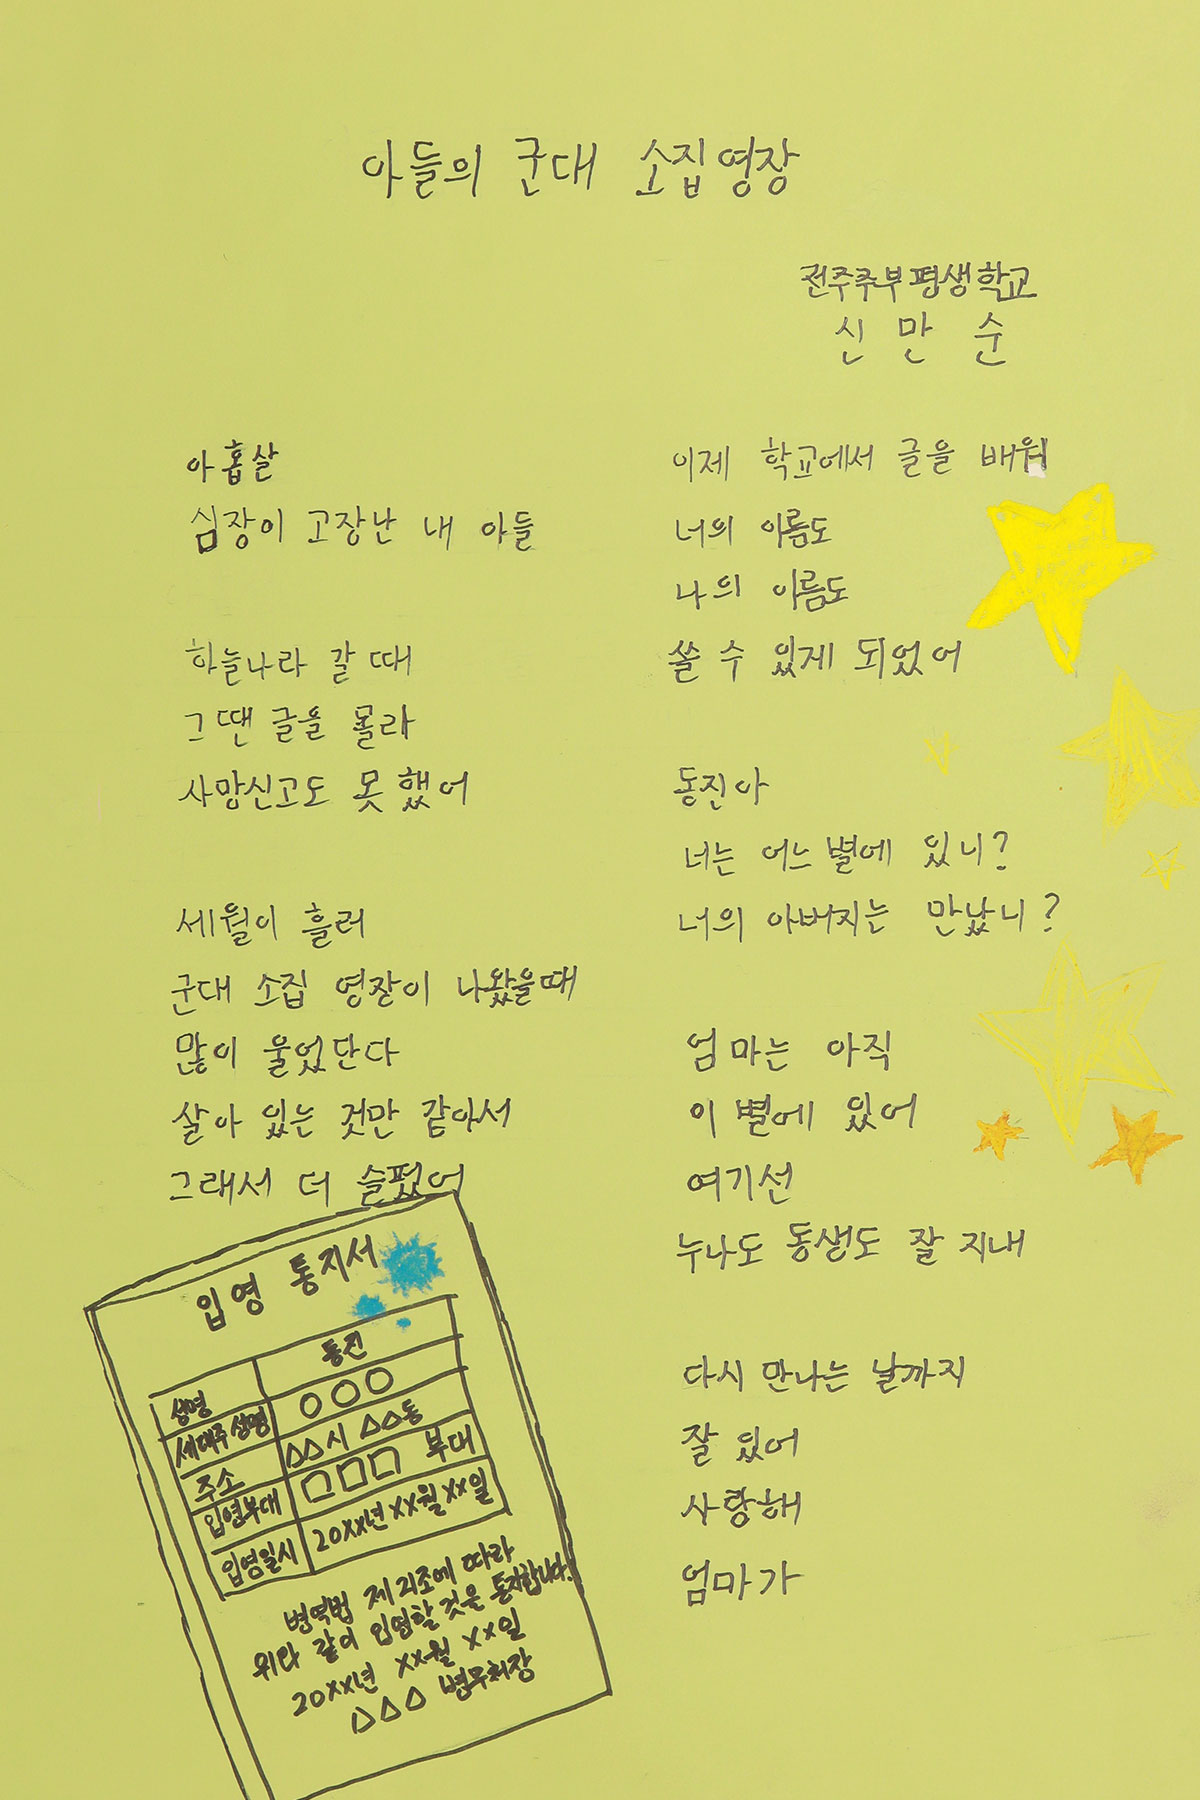 아들의 군대 소집영장
전주주부평생학교
신만순
아홉살
심장이 고장난 내 아들
하늘나라 갈 때
그땐 글을 몰라
사망신고도 못 했어
세월이 흘러
군대 소집 영장이 나왔을때
많이 울었단다
살아 있는 것만 같아서
그래서 더 슬펐어
이제 학교에서 글을 배워
너의 이름도
나의 이름도
쓸 수 있게 되었어
동진아
너는 어느 별에 있니?
너의 아버지는 만났니?
엄마는 아직
이 별에 있어
여기선
누나도 동생도 잘 지내
다시 만나는 날까지
잘 있어
사랑해
엄마가
입영 통지서
성명 동진
세대주성명 ○○○
주소 △△시 △△동
입영부대 □□□ 부대
입영일시 20xx년 xx월 xx일
병역법 제 21조에 따라
위와 같이 입영할 것을 통지합니다.
20xx년 xx월 xx일
△△△ 병무처장